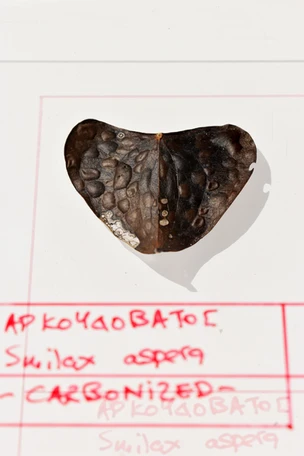 ΑΡΚΟΥΔΟΒΑΤΟΣ
Smilax aspera
- CARBONIZED -
ΑΡΚΟΥΔΟΒΑΤΟΣ
Smilax aspera